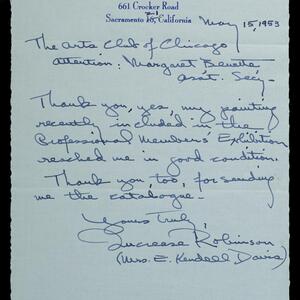 661 Crocker Road
Sacramento 18, California
May 15, 1953
The Arts Club of Chicago
Attention: Margaret
Asst. Sec'y -
Thank you, yes, my painting
recently included in the
Professional Members' Exhibition
reached me in good condition.
Thank you, too, for sending
me the catalogue -
Yours truly,
Increase Robinson
(Mrs. E. Kendall Davis)